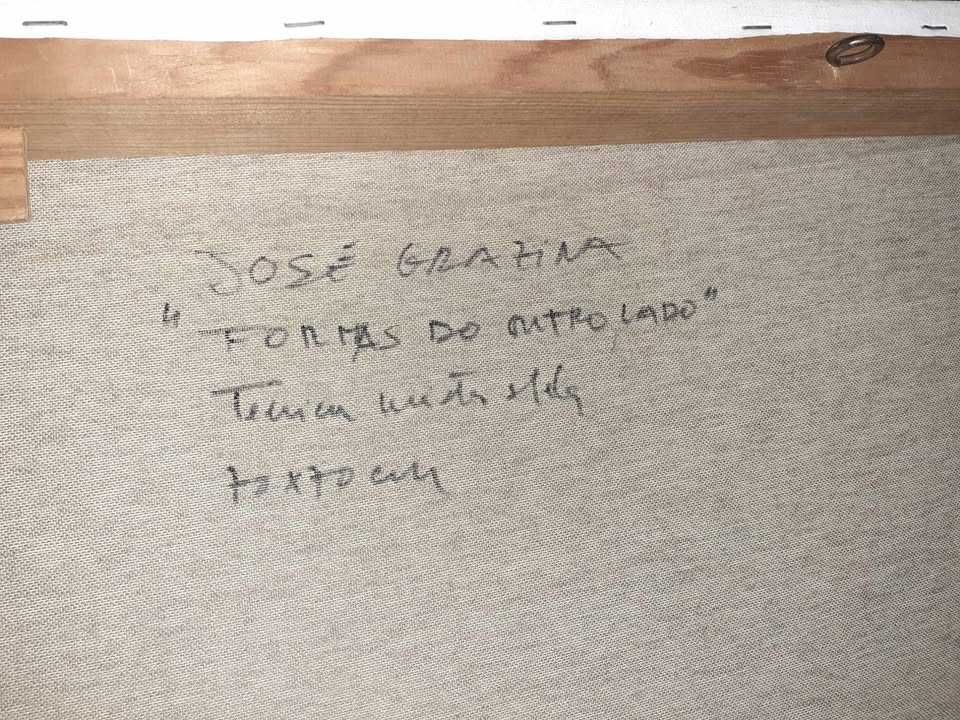 JOSÉ GRAZINA
"FORMAS DO OUTRO LADO"
Tecnica mista s/tela
70x70 cm